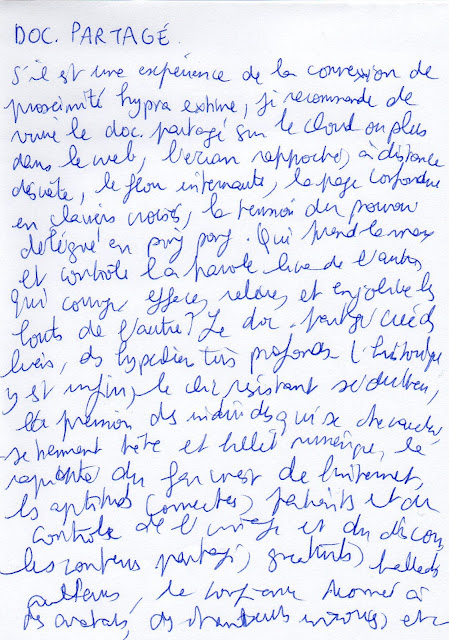 DOC. PARTAGÉ.
S'il est une expérience de la connexion de
proximité hypra extime, je recommande de
vivre le doc. partagé sur le cloud ou plus
dans le web, l'écran rapproché, à distance
discrète, le flou internaute, la page confondue
en claviers croisés, la tension du pouvoir
délégué en ping pong. Qui prend la main
et contrôle la parole live de l'autre
qui corrige, efface, relève, et enjolive les
bouts de l'autre? Le doc. partagé crée des
liens, des hyperliens très profonds (l'historique
y est infini), le clic resistant séducteur,
la pression des individus qui se chevauchent,
se tiennent tête et numérique, la
du far west de l'internet,
les aptitudes connectées, et du
contrôle de l'image et du discours,
les contenus partagés, gratuits,
la confiance à
des avatars, des inconnus, etc